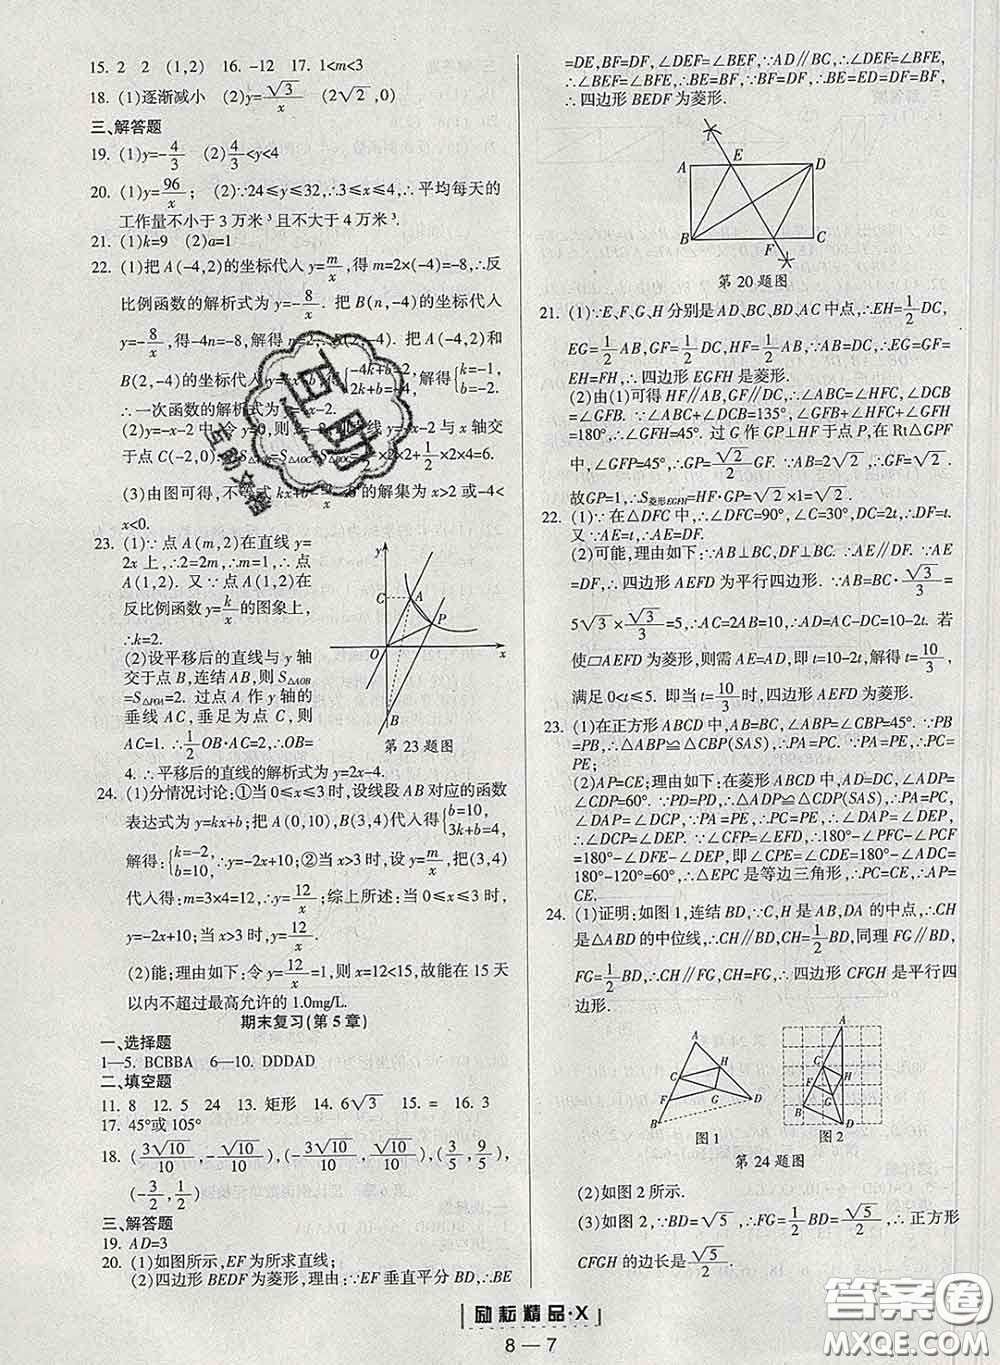 15. 2  2  (1,2)  16. -12  17. 1<m<3
18. (1)逐渐减小  (2)y=√3/x  (2√2,0)
三、解答题
19. (1)y=-4/3  (2)4/3<y<4
20. (1)y=96/x；(2)∵24≤y≤32,∴3≤x≤4,∴平均每天的
工作量不小于3万米³且不大于4万米³.
21. (1)k=9  (2)a=1
22. (1)把A(-4,2)的坐标代人y=m/x,得m=2×(-4)=-8,∴反
比例函数的解析式为y=-8/x. 把B(n,-4)的坐标代人
y=-8/x,得-4n=-8,解得n=2,∴B(2,-4). 把A(-4,2)和
B(2,-4)的坐标代人y=kx+b,得{-4k+b=2, 2k+b=-4,解得{k=-1, b=-2.
∴一次函数的解析式为y=-x-2.
(2)y=-x-2中,令y=0,则x=-2,即直线y=-x-2与x轴交
于点C(-2,0),∴S△AOB=S△AOC+S△BOC=1/2×2×2+1/2×2×4=6.
(3)由图可得,不等式kx+b-m/x<0的解集为x>2或-4<
x<0.
23. (1)∵点A(m,2)在直线y=
2x上,∴2=2m,∴m=1,∴点
A(1,2). 又∵点A(1,2)在
反比例函数y=k/x的图象上,
∴k=2.
(2)设平移后的直线与y轴
交于点B,连结AB,则S△AOB
=S△POA=2. 过点A作y轴的
垂线AC,垂足为点C,则
AC=1. ∴1/2OB·AC=2,∴OB=
y C A P O x B
第23题图
4. ∴平移后的直线的解析式为y=2x-4.
24. (1)分情况讨论:①当0≤x≤3时,设线段AB对应的函数
表达式为y=kx+b;把A(0,10),B(3,4)代人得{b=10, 3k+b=4,
解得:{k=-2, b=10,∴y=-2x+10;②当x>3时,设y=m/x,把(3,4)
代人得:m=3×4=12,∴y=12/x;综上所述:当0≤x≤3时,
y=-2x+10;当x>3时,y=12/x.
(2)能;理由如下:令y=12/x=1,则x=12<15,故能在15天
以内不超过最高允许的1.0mg/L.
期末复习(第5章)
一、选择题
1—5. BCBBA  6—10. DDDAD
二、填空题
11. 8  12. 5  24  13. 矩形  14. 6√3  15. =  16. 3
17. 45°或105°
18. (3√10/10,-√10/10),(-3√10/10,√10/10),(3/5,9/5),
(-3/2,1/2)
三、解答题
19. AD=3
20. (1)如图所示,EF为所求直线;
(2)四边形BEDF为菱形,理由:∵EF垂直平分BD,∴BE
=DE,BF=DF,∠DEF=∠BEF,∵AD∥BC,∴∠DEF=∠BFE,
∴∠BEF=∠BFE,∴BE=BF,∵BF=DF,∴BE=ED=DF=BF,
∴四边形BEDF为菱形.
A E D B F C
第20题图
21. (1)∵E、F、G、H分别是AD、BC、BD、AC中点,∴EH=1/2DC,
EG=1/2AB,GF=1/2DC,HF=1/2AB,∵AB=DC,∴EG=GF=
EH=FH,∴四边形EGFH是菱形.
(2)由(1)可得HF∥AB,GF∥DC,∴∠ABC=∠HFC,∠DCB
=∠GFB. ∵∠ABC+∠DCB=135°,∴∠HFC+∠GFB+∠GFH=
180°,∴∠GFH=45°. 过G作GP⊥HF于点P,在Rt△GPF
中,∠GFP=45°,∴GP=√2/2GF. ∵AB=2√2,∴GF=√2.
故GP=1,∴S菱形EGFH=HF·GP=√2×1=√2.
22. (1)∵在△DFC中,∠DFC=90°,∠C=30°,DC=2t,∴DF=t.
又∵AE=t,∴AE=DF.
(2)可能,理由如下:∵AB⊥BC,DF⊥BC,∴AE∥DF. ∵AE
=DF,∴四边形AEFD为平行四边形. ∵AB=BC·√3/3=
5√3×√3/3=5,∴AC=2AB=10,∴AD=AC-DC=10-2t. 若
使▱AEFD为菱形,则需AE=AD,即t=10-2t,解得t=10/3,
满足0<t≤5. 即当t=10/3时,四边形AEFD为菱形.
23. (1)在正方形ABCD中,AB=BC,∠ABP=∠CBP=45°. ∵PB
=PB,∴△ABP≌△CBP(SAS),∴PA=PC. ∵PA=PE,∴PC=
PE;
(2)AP=CE;理由如下:在菱形ABCD中,AD=DC,∠ADP=
∠CDP=60°. ∵PD=PD,∴△ADP≌△CDP(SAS),∴PA=PC,
∠DAP=∠DCP,∵PA=PE,∴PC=PE,∴∠DAP=∠DEP,
∴∠DCP=∠DEP. ∵∠CFP=∠EFD,∴180°-∠PFC-∠PCF
=180°-∠DFE-∠DEP,即∠CPE=∠CDE=180°-∠ADC=
180°-120°=60°,∴△EPC是等边三角形,∴PC=CE,∴AP=
CE.
24. (1)证明:如图1,连结BD,∵C,H是AB,DA的中点,∴CH
是△ABD的中位线,∴CH∥BD,CH=1/2BD,同理FG∥BD,
FG=1/2BD,∴CH∥FG,CH=FG,∴四边形CFGH是平行四
边形.
A C H F G D B
图1
A C H F G B D
图2
第24题图
(2)如图2所示.
(3)如图2,∵BD=√5,∴FG=1/2BD=√5/2,∴正方形
CFGH的边长是√5/2.
励耘精品·X
8—7
互助
答案圈
MXQE.COM